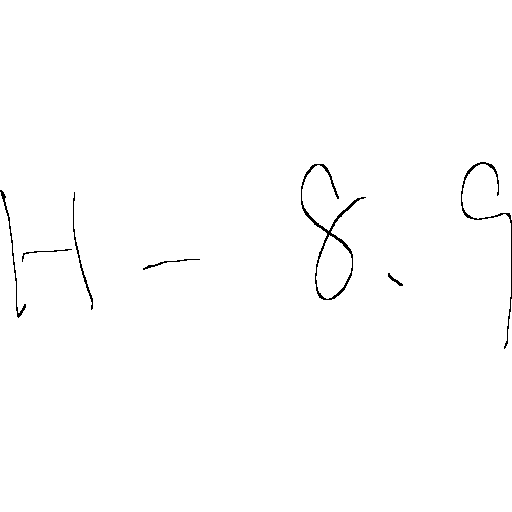 H - 8.9